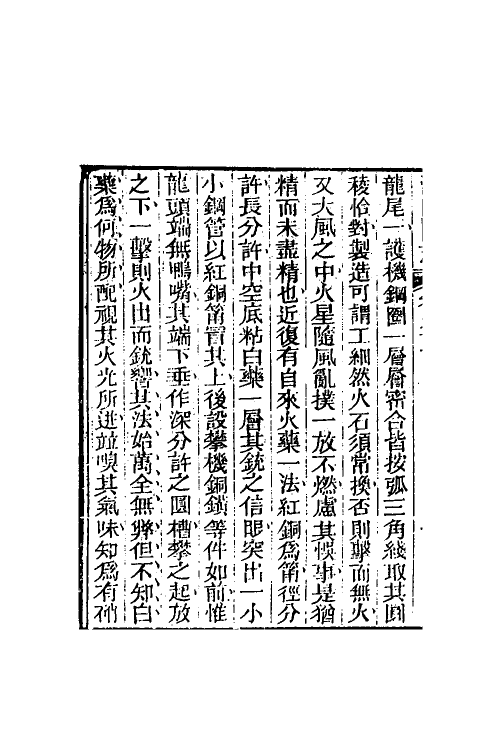 龍尾一護機鋼圈一層層密合皆按弧三角綫取其圓
稜恰對製造可謂工細然火石須常換否則擊而無火
又大風之中火星隨風亂撲一放不燃慮其悞事是猶
精而未盡精也近復有自來火藥一法紅銅爲筩徑分
許長分許中空底粘白藥一層其銃之信眼突出一小
小鋼管以紅銅筩冒其上後設攀機銅鐄等件如前惟
龍頭端無鴨嘴其端下垂作深分許之圓槽攀之起放
之下一擊則火出而銃響其法始萬全無弊但不知白
藥爲何物所配視其火光所迸並嗅其氣味知爲有硝